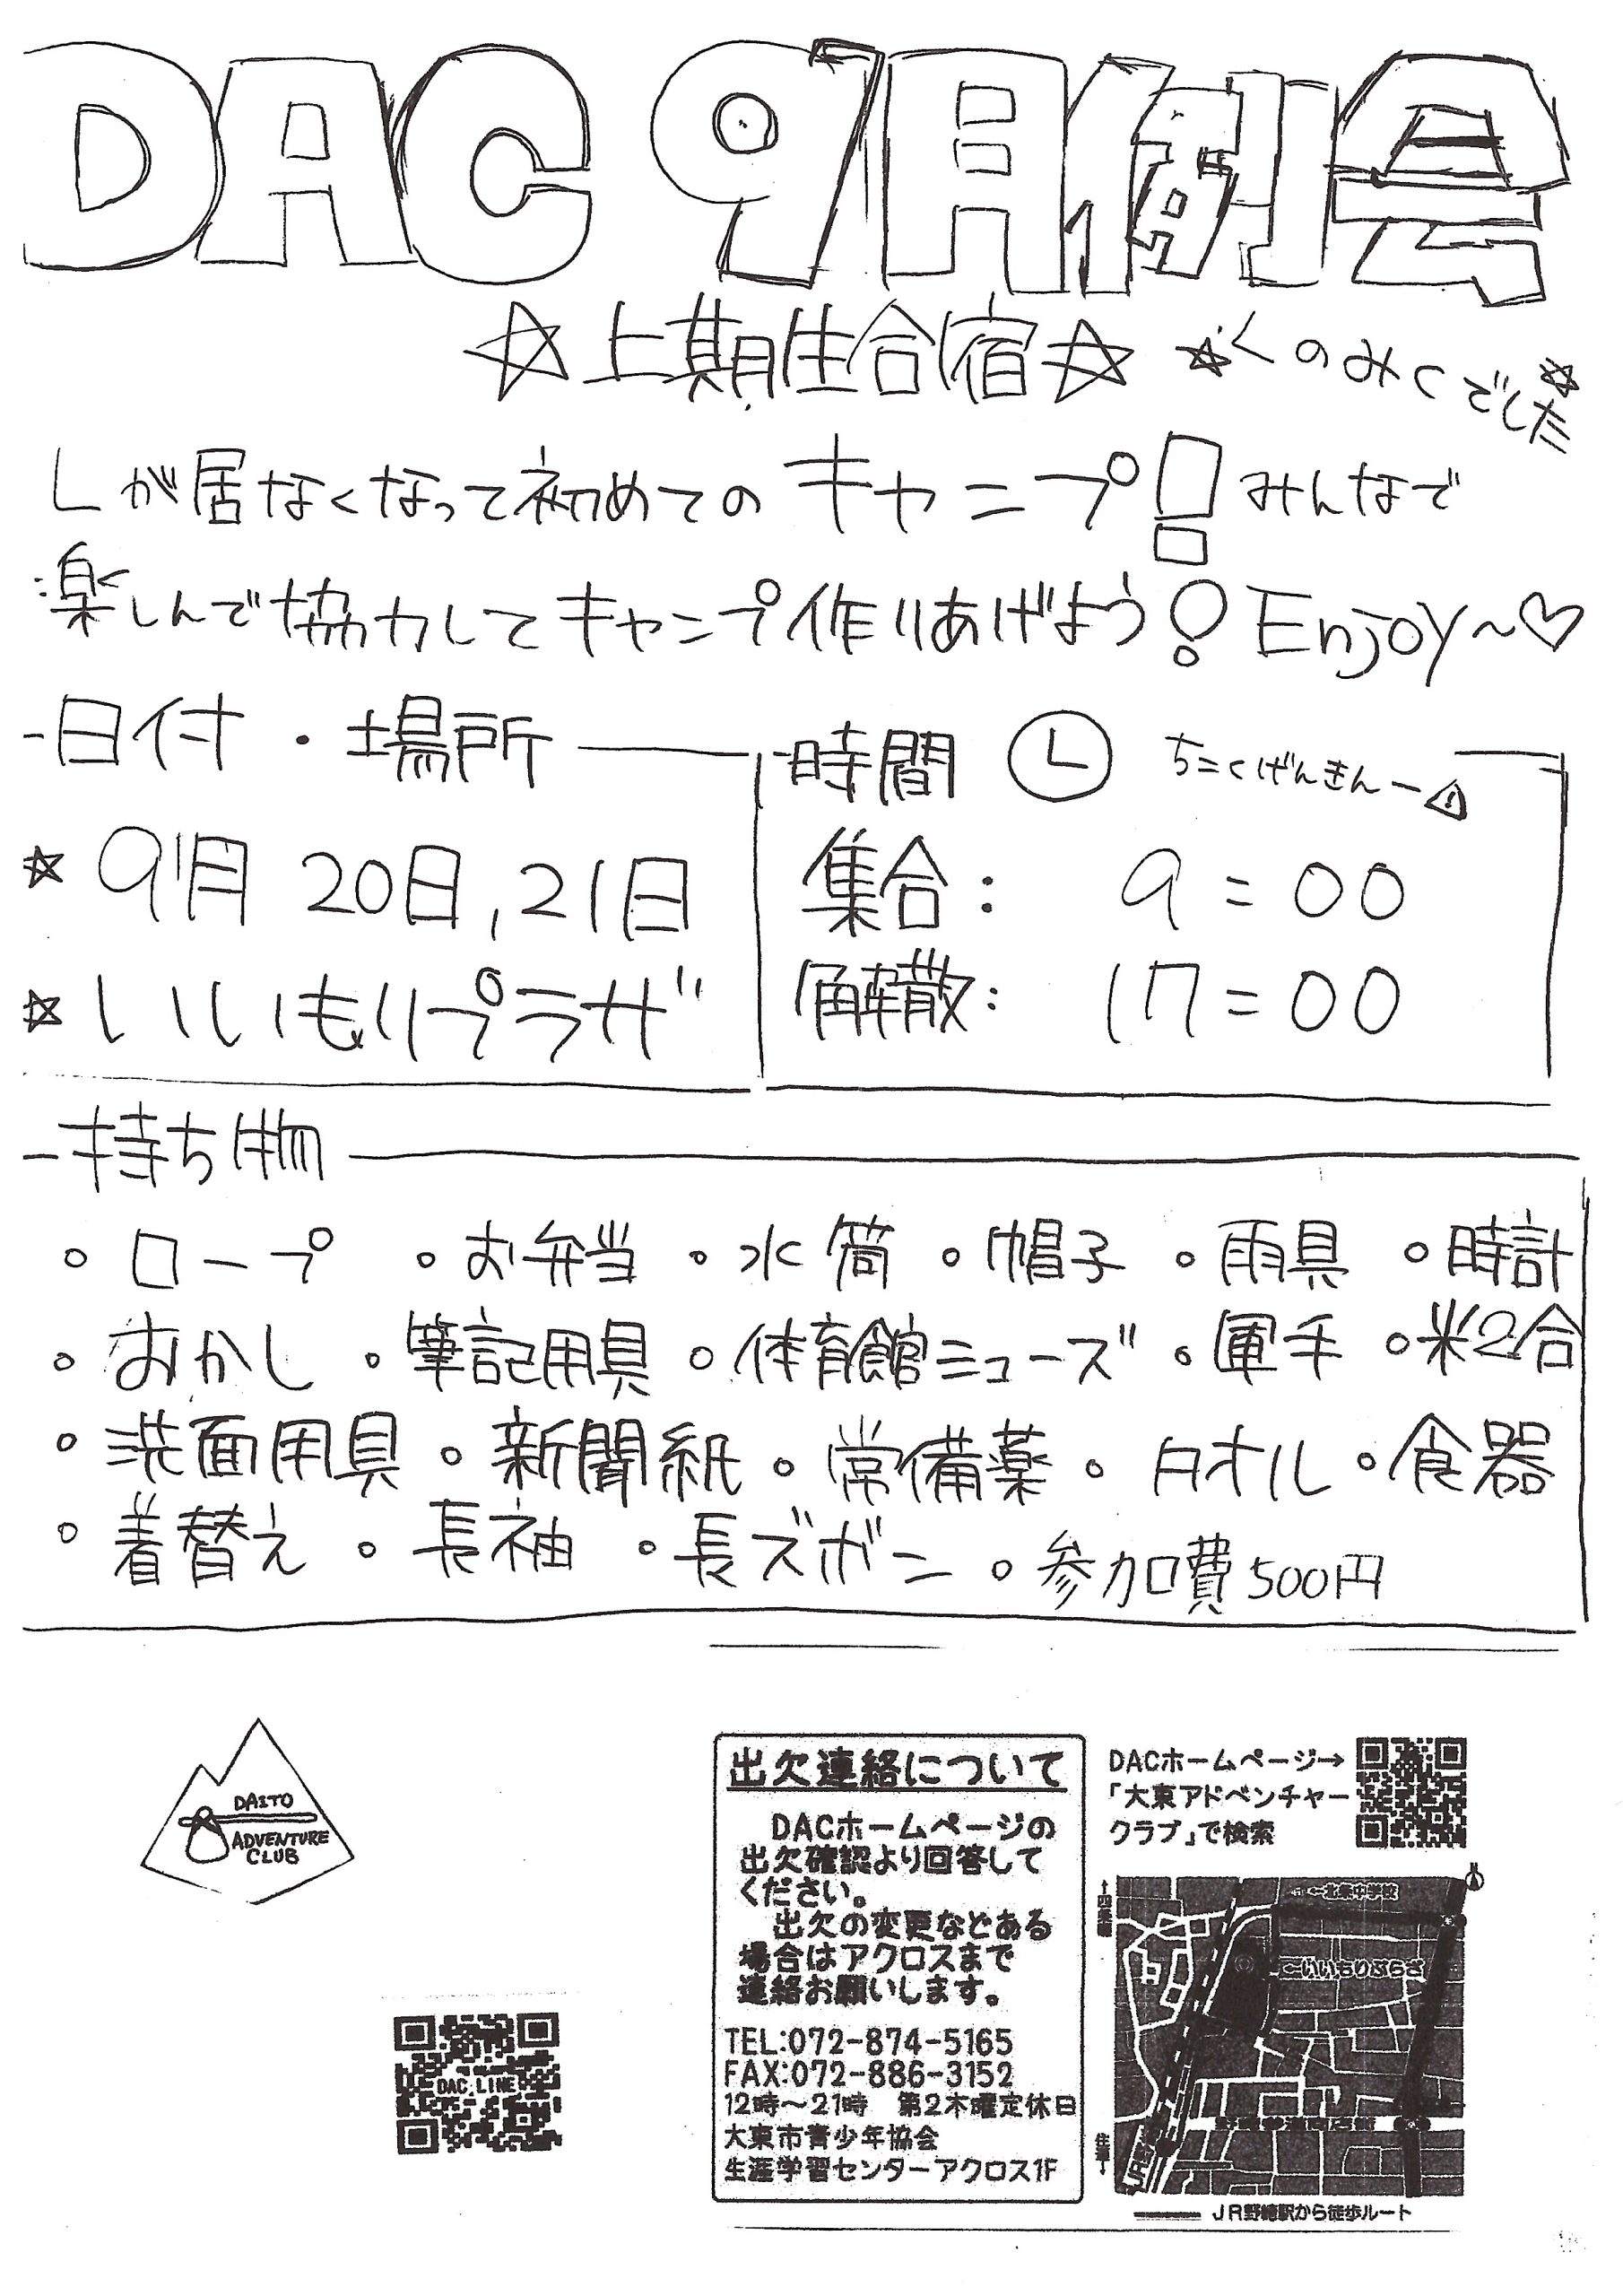 DAC 9月例会
☆上期生合宿☆ ☆くのみくでした☆
Lが居なくなって初めてのキャンプ!みんなで
楽しんで協力してキャンプ作りあげよう!Enjoy~♡
日付・場所
☆9月 20日,21日
☆いいもりプラザ
時間 ちこくげんきんー
集合: 9:00
解散: 17:00
持ち物
・ロープ ・お弁当 ・水筒 ・帽子 ・雨具 ・時計
・おかし ・筆記用具 ・体育館シューズ ・軍手 ・米2合
・洗面用具 ・新聞紙 ・常備薬 ・タオル ・食器
・着替え ・長袖 ・長ズボン ・参加費500円
DAITO
ADVENTURE
CLUB
DAC LINE
出欠連絡について
DACホームページの
出欠確認より回答して
ください。
出欠の変更などある
場合はアクロスまで
連絡お願いします。
TEL:072-874-5165
FAX:072-886-3152
12時〜21時 第2木曜定休日
大東市青少年協会
生涯学習センターアクロス1F
DACホームページ→
「大東アドベンチャー
クラブ」で検索
←北条中学校
←いいもりぷらざ
JR野崎駅から徒歩ルート